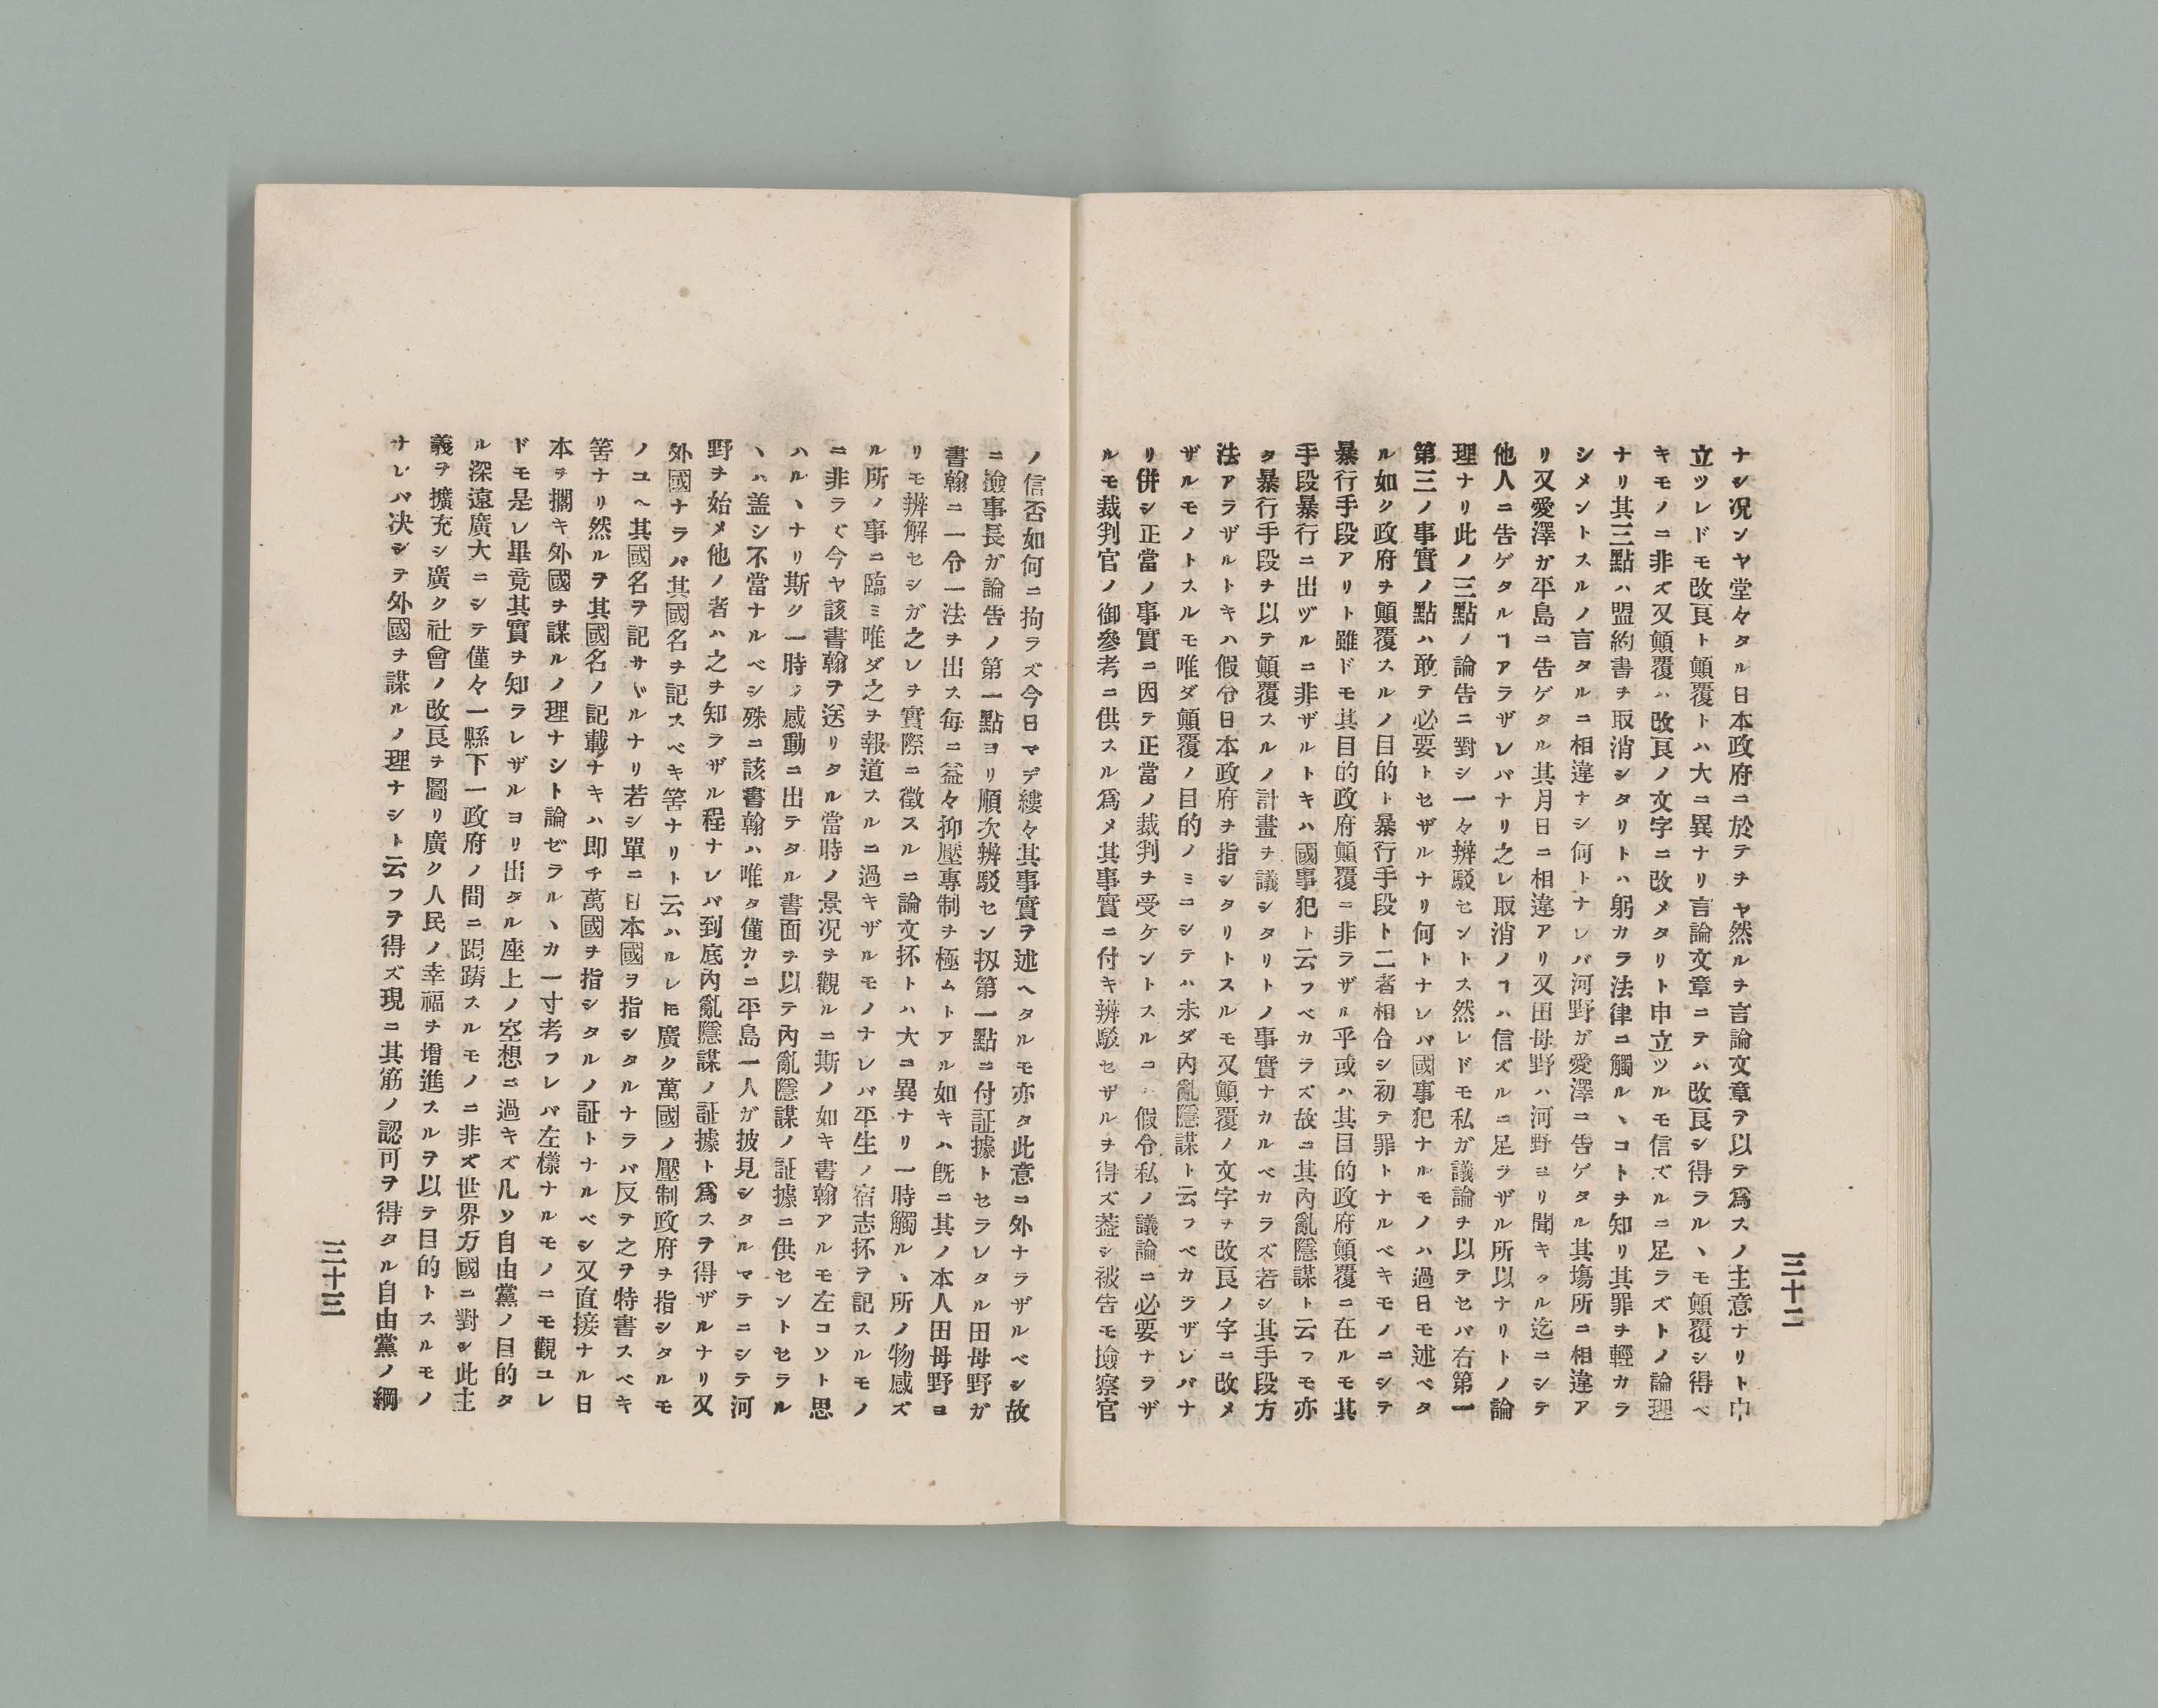 三十二
ナシ况ンヤ堂々タル日本政府ニ於テヲヤ然ルヲ言論文章ヲ以テ爲スノ主意ナリト申
立ツレドモ改良ト顛覆トハ大ニ異ナリ言論文章ニテハ改良シ得ラルヽモ顛覆シ得ベ
キモノニ非ズ又顛覆ハ改良ノ文字ニ改メタリト申立ツルモ信ズルニ足ラズトノ論理
ナリ其三點ハ盟約書ヲ取消シタリトハ躬カラ法律ニ觸ルヽコトヲ知リ其罪ヲ輕カラ
シメントスルノ言タルニ相違ナシ何トナレバ河野ガ愛澤ニ告ゲタル其塲所ニ相違ア
リ又愛澤ガ平島ニ告ゲタル其月日ニ相違アリ又田母野ハ河野ヨリ聞キタル迄ニシテ
他人ニ告ゲタルヿアラザレバナリ之レ取消ノヿハ信ズルニ足ラザル所以ナリトノ論
理ナリ此ノ三點ノ論告ニ對シ一々辨駁セントス然レドモ私ガ議論ヲ以テセバ右第一
第三ノ事實ノ點ハ敢テ必要トセザルナリ何トナレバ國事犯ナルモノハ過日モ述ベタ
ル如ク政府ヲ顛覆スルノ目的ト暴行手段ト二者相合シ初テ罪トナルベキモノニシテ
暴行手段アリト雖ドモ其目的政府顛覆ニ非ラザル乎或ハ其目的政府顛覆ニ在ルモ其
手段暴行ニ出ヅルニ非ザルトキハ國事犯ト云フベカラズ故ニ其內亂隱謀ト云フモ亦
タ暴行手段ヲ以テ顛覆スルノ計畫ヲ議シタリトノ事實ナカルベカラズ若シ其手段方
法アラザルトキハ假令日本政府ヲ指シタリトスルモ又顛覆ノ文字ヲ改良ノ字ニ改メ
ザルモノトスルモ唯ダ顛覆ノ目的ノミニシテハ未ダ內亂隱謀ト云フベカラザレバナ
リ併シ正當ノ事實ニ因テ正當ノ裁判ヲ受ケントスルニハ假令私ノ議論ニ必要ナラザ
ルモ裁判官ノ御參考ニ供スル爲メ其事實ニ付キ辨駁セザルヲ得ズ葢シ被告モ撿察官
ノ信否如何ニ拘ラズ今日マデ縷々其事實ヲ述ヘタルモ亦タ此意ニ外ナラザルベシ故
ニ撿事長ガ論告ノ第一點ヨリ順次辨駁セン扨第一點ニ付証據トセラレタル田母野ガ
書翰ニ一令一法ヲ出ス每ニ益々抑壓專制ヲ極ムトアル如キハ旣ニ其ノ本人田母野ヨ
リモ辨解セシガ之レヲ實際ニ徵スルニ論文抔トハ大ニ異ナリ一時觸ルヽ所ノ物感ズ
ル所ノ事ニ臨ミ唯ダ之ヲ報道スルニ過キザルモノナレバ平生ノ宿志抔ヲ記スルモノ
ニ非ラズ今ヤ該書翰ヲ送リタル當時ノ景况ヲ觀ルニ斯ノ如キ書翰アルモ左コソト思
ハルヽナリ斯ク一時ノ感動ニ出テタル書面ヲ以テ內亂隱謀ノ証據ニ供セントセラル
ヽハ盖シ不當ナルベシ殊ニ該書翰ハ唯タ僅カニ平島一人ガ披見シタルマテニシテ河
野ヲ始メ他ノ者ハ之ヲ知ラザル程ナレバ到底內亂隱謀ノ証據ト爲スヲ得ザルナリ又
外國ナラバ其國名ヲ記スベキ筈ナリト云ハルレ𪜈廣ク萬國ノ壓制政府ヲ指シタルモ
ノユヘ其國名ヲ記サヾルナリ若シ單ニ日本國ヲ指シタルナラバ反テ之ヲ特書スベキ
筈ナリ然ルヲ其國名ノ記載ナキハ即チ萬國ヲ指シタルノ証トナルベシ又直接ナル日
本ヲ擱キ外國ヲ謀ルノ理ナシト論ゼラルヽカ一寸考フレバ左樣ナルモノニモ觀ユレ
ドモ是レ畢竟其實ヲ知ラレザルヨリ出タル座上ノ空想ニ過キズ凡ソ自由黨ノ目的タ
ル深遠廣大ニシテ僅々一縣下一政府ノ間ニ跼蹐スルモノニ非ズ世界万國ニ對シ此主
義ヲ擴充シ廣ク社會ノ改良ヲ圖リ廣ク人民ノ幸福ヲ增進スルヲ以テ目的トスルモノ
ナレバ决シテ外國ヲ謀ルノ理ナシト云フヲ得ズ現ニ其筋ノ認可ヲ得タル自由黨ノ綱
三十三